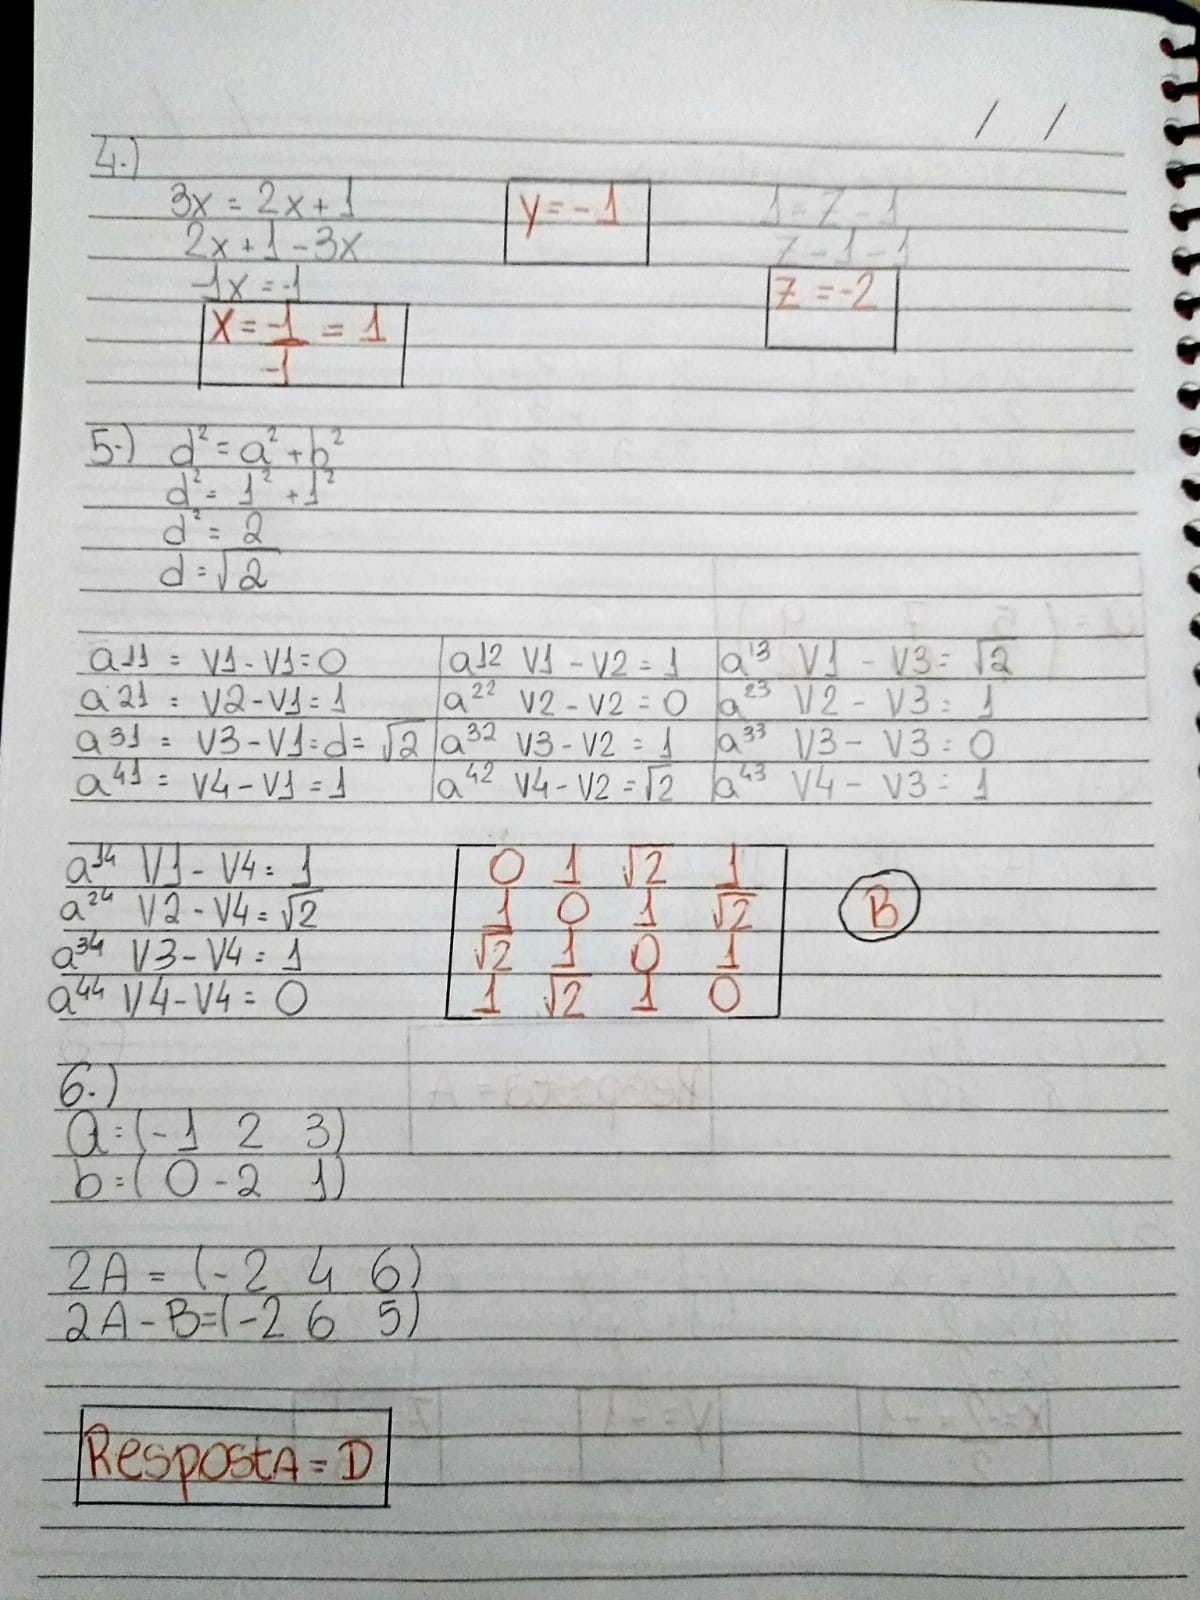 / /
4.)
3x = 2x + 1
2x + 1 - 3x
-1x = -1
x = -1/-1 = 1
y = -1
1 = z - 1
z - 1 - 1
z = -2
5.) d² = a² + b²
d² = 1² + 1²
d² = 2
d = √2
a11 = V1 - V1 = 0 a12 V1 - V2 = 1 a13 V1 - V3 = √2
a21 = V2 - V1 = 1 a22 V2 - V2 = 0 a23 V2 - V3 = 1
a31 = V3 - V1 = d = √2 a32 V3 - V2 = 1 a33 V3 - V3 = 0
a41 = V4 - V1 = 1 a42 V4 - V2 = √2 a43 V4 - V3 = 1
a14 V1 - V4 = 1
a24 V2 - V4 = √2
a34 V3 - V4 = 1
a44 V4 - V4 = 0
0 1 √2 1
1 0 1 √2
√2 1 0 1
1 √2 1 0
B
6.)
a = (-1 2 3)
b = (0 -2 1)
2A = (-2 4 6)
2A - B = (-2 6 5)
Resposta = D